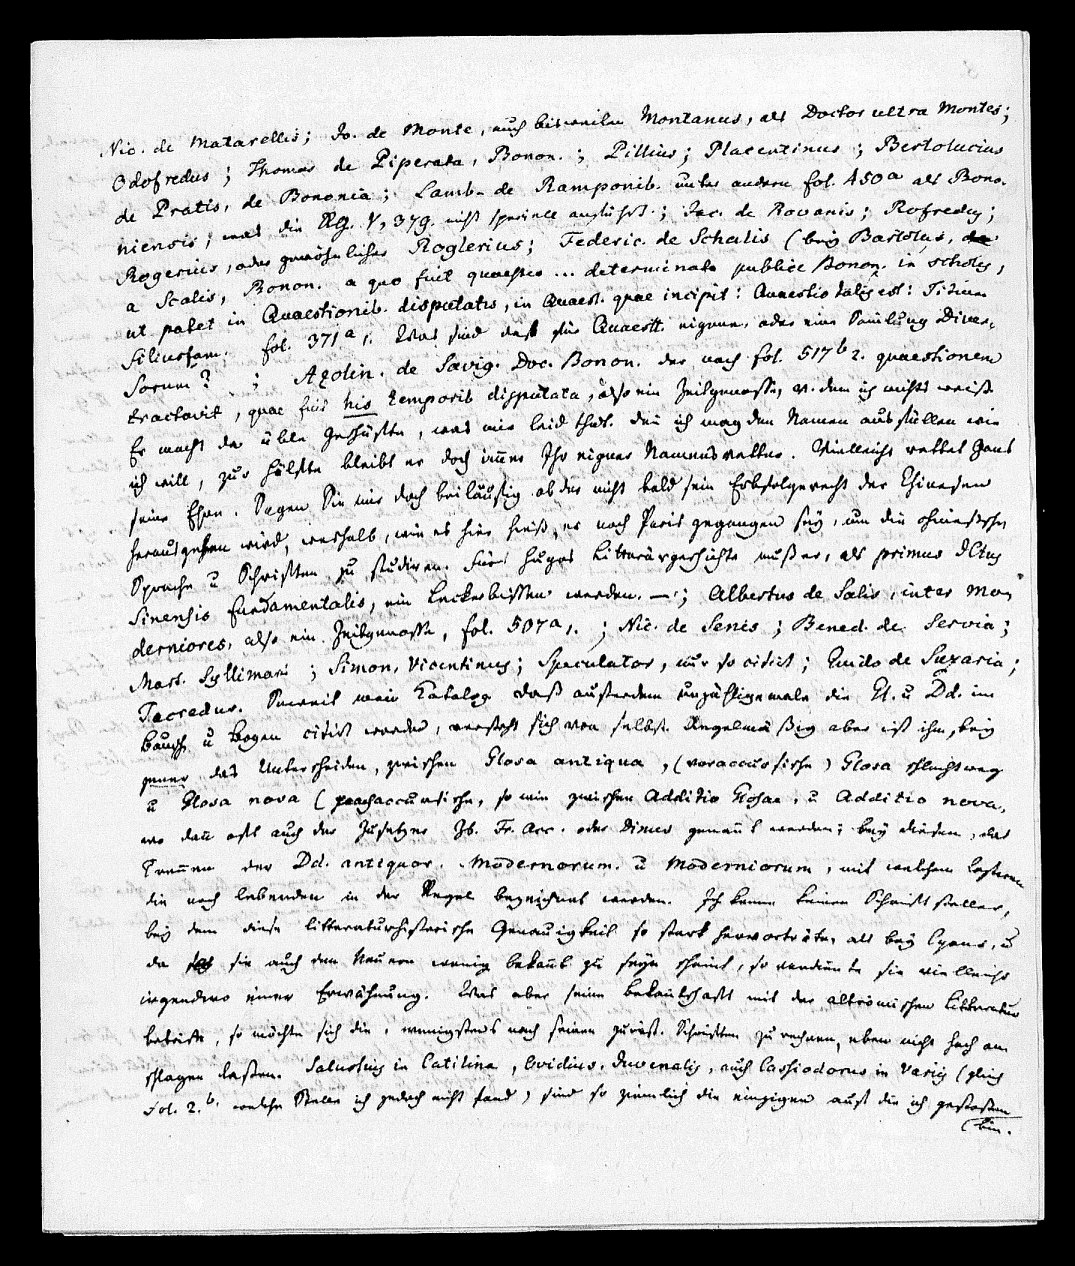 Nic. de Matarellis; Jo. de Monte, auch bisweilen Montanus, als Doctor ultra Montes;
Odofredus; Thomas de Piperata, Bonon.; Pillius; Placentinus; Bertolucius
de Pratis, de Bononia; Lamb. de Ramponib. unter andern fol. 450a als Bono-
niensis, was die Rg. V, 379. nicht speciell anführt; Jac. de Ravanis; Rofredus;
Rogerius, oder gewöhnlicher Roglerius; Federic. de Schalis (bey Bartolus,
a Scalis, Bonon. a quo fuit quaestio ... determinata publice Bonon. in scholis,
ut patet in Quaestionib. disputatis, in Quaest. quae incipit: Quaestio talis est: Titium
filiusfam. fol. 371a 1. Was sind das für Quaestt. eigene, oder eine Samlung Diver-
sorum?; Azolin. de Savig. Doc. Bonon. der nach fol. 517b 2. quaestionem
tractavit, quae fuit his temporib disputata, also ein Zeitgenosse, v. dem ich nichts weiß
Er macht da üble Geschäfte, was mir leid thut. Den ich mag den Namen ausfüllen wie
ich will, zur Hälfte bleibt er doch immer Ihr eigner Namensvetter. Vielleicht rettet Gans
seine Ehre. Sagen Sie mir doch beiläufig ob der nicht bald sein Erbfolgerecht der Chinesen
herausgeben wird, weshalb, wie es hier hieß, er nach Paris gegangen sey, um die chinesische
Sprache u Schriften zu studiren. Für Hugos Litterärgeschichte muß er, als primus JCtus
Sinensis fundamentalis, ein Leckerbissen werden. —; Albertus de Salis, inter mo-
derniores, also ein Zeitgenosse, fol. 507a 1.; Nic. de Senis; Bened. de Servia;
Mart. Syllimani; Simon, Vicentinus; Speculator, nur so citirt; Guido de Suzaria;
Tacredus. Soweit mein Katalog Daß außerdem unzähligemale die Gl. u Dd. im
Bausch u Bogen citirt werden, versteht sich von selbst. Regelmäßig aber ist ihm, bey
jener das Unterscheiden, zwischen Glosa antiqua, (voraccursische) Glosa schlechtweg
u Glosa nova (nachaccursische, so wie zwischen Additio Glosae, u Additio nova,
wo dan oft auch der Zusetzer zb. Fr. Acc. oder Dinus genant werden; bey diesen, das
Trennen der Dd. antiquor. modernorum. u moderniorum, mit welchem letzteren
die noch lebenden in der Regel bezeichnet werden. Ich kenne keinen Schriftsteller,
bey dem diese litteraturhistorische Genauigkeit so stark hervorträte, als bey Cynus, u
da sie auch den Neuern wenig bekant zu seyn scheint, so verdiente sie vielleicht
irgendwo einer Erwähnung. Was aber seine Bekantschaft mit der altrömischen Litteratur
betrift, so möchte sich die, wenigstens nach seinen jurist. Schriften zu rechnen, eben nicht hoch an-
schlagen lassen. Salustius in Catilina, Ovidius, Juvenalis, auch Cassiodorus in Variis (gleich
Fol. 2.b. welche Stelle ich jedoch nicht fand) sind so ziemlich die einzigen auf die ich gestoßen
bin.